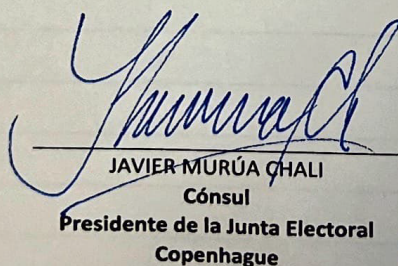 JAVIER MURÚA CHALI
Cónsul
Presidente de la Junta Electoral
Copenhague